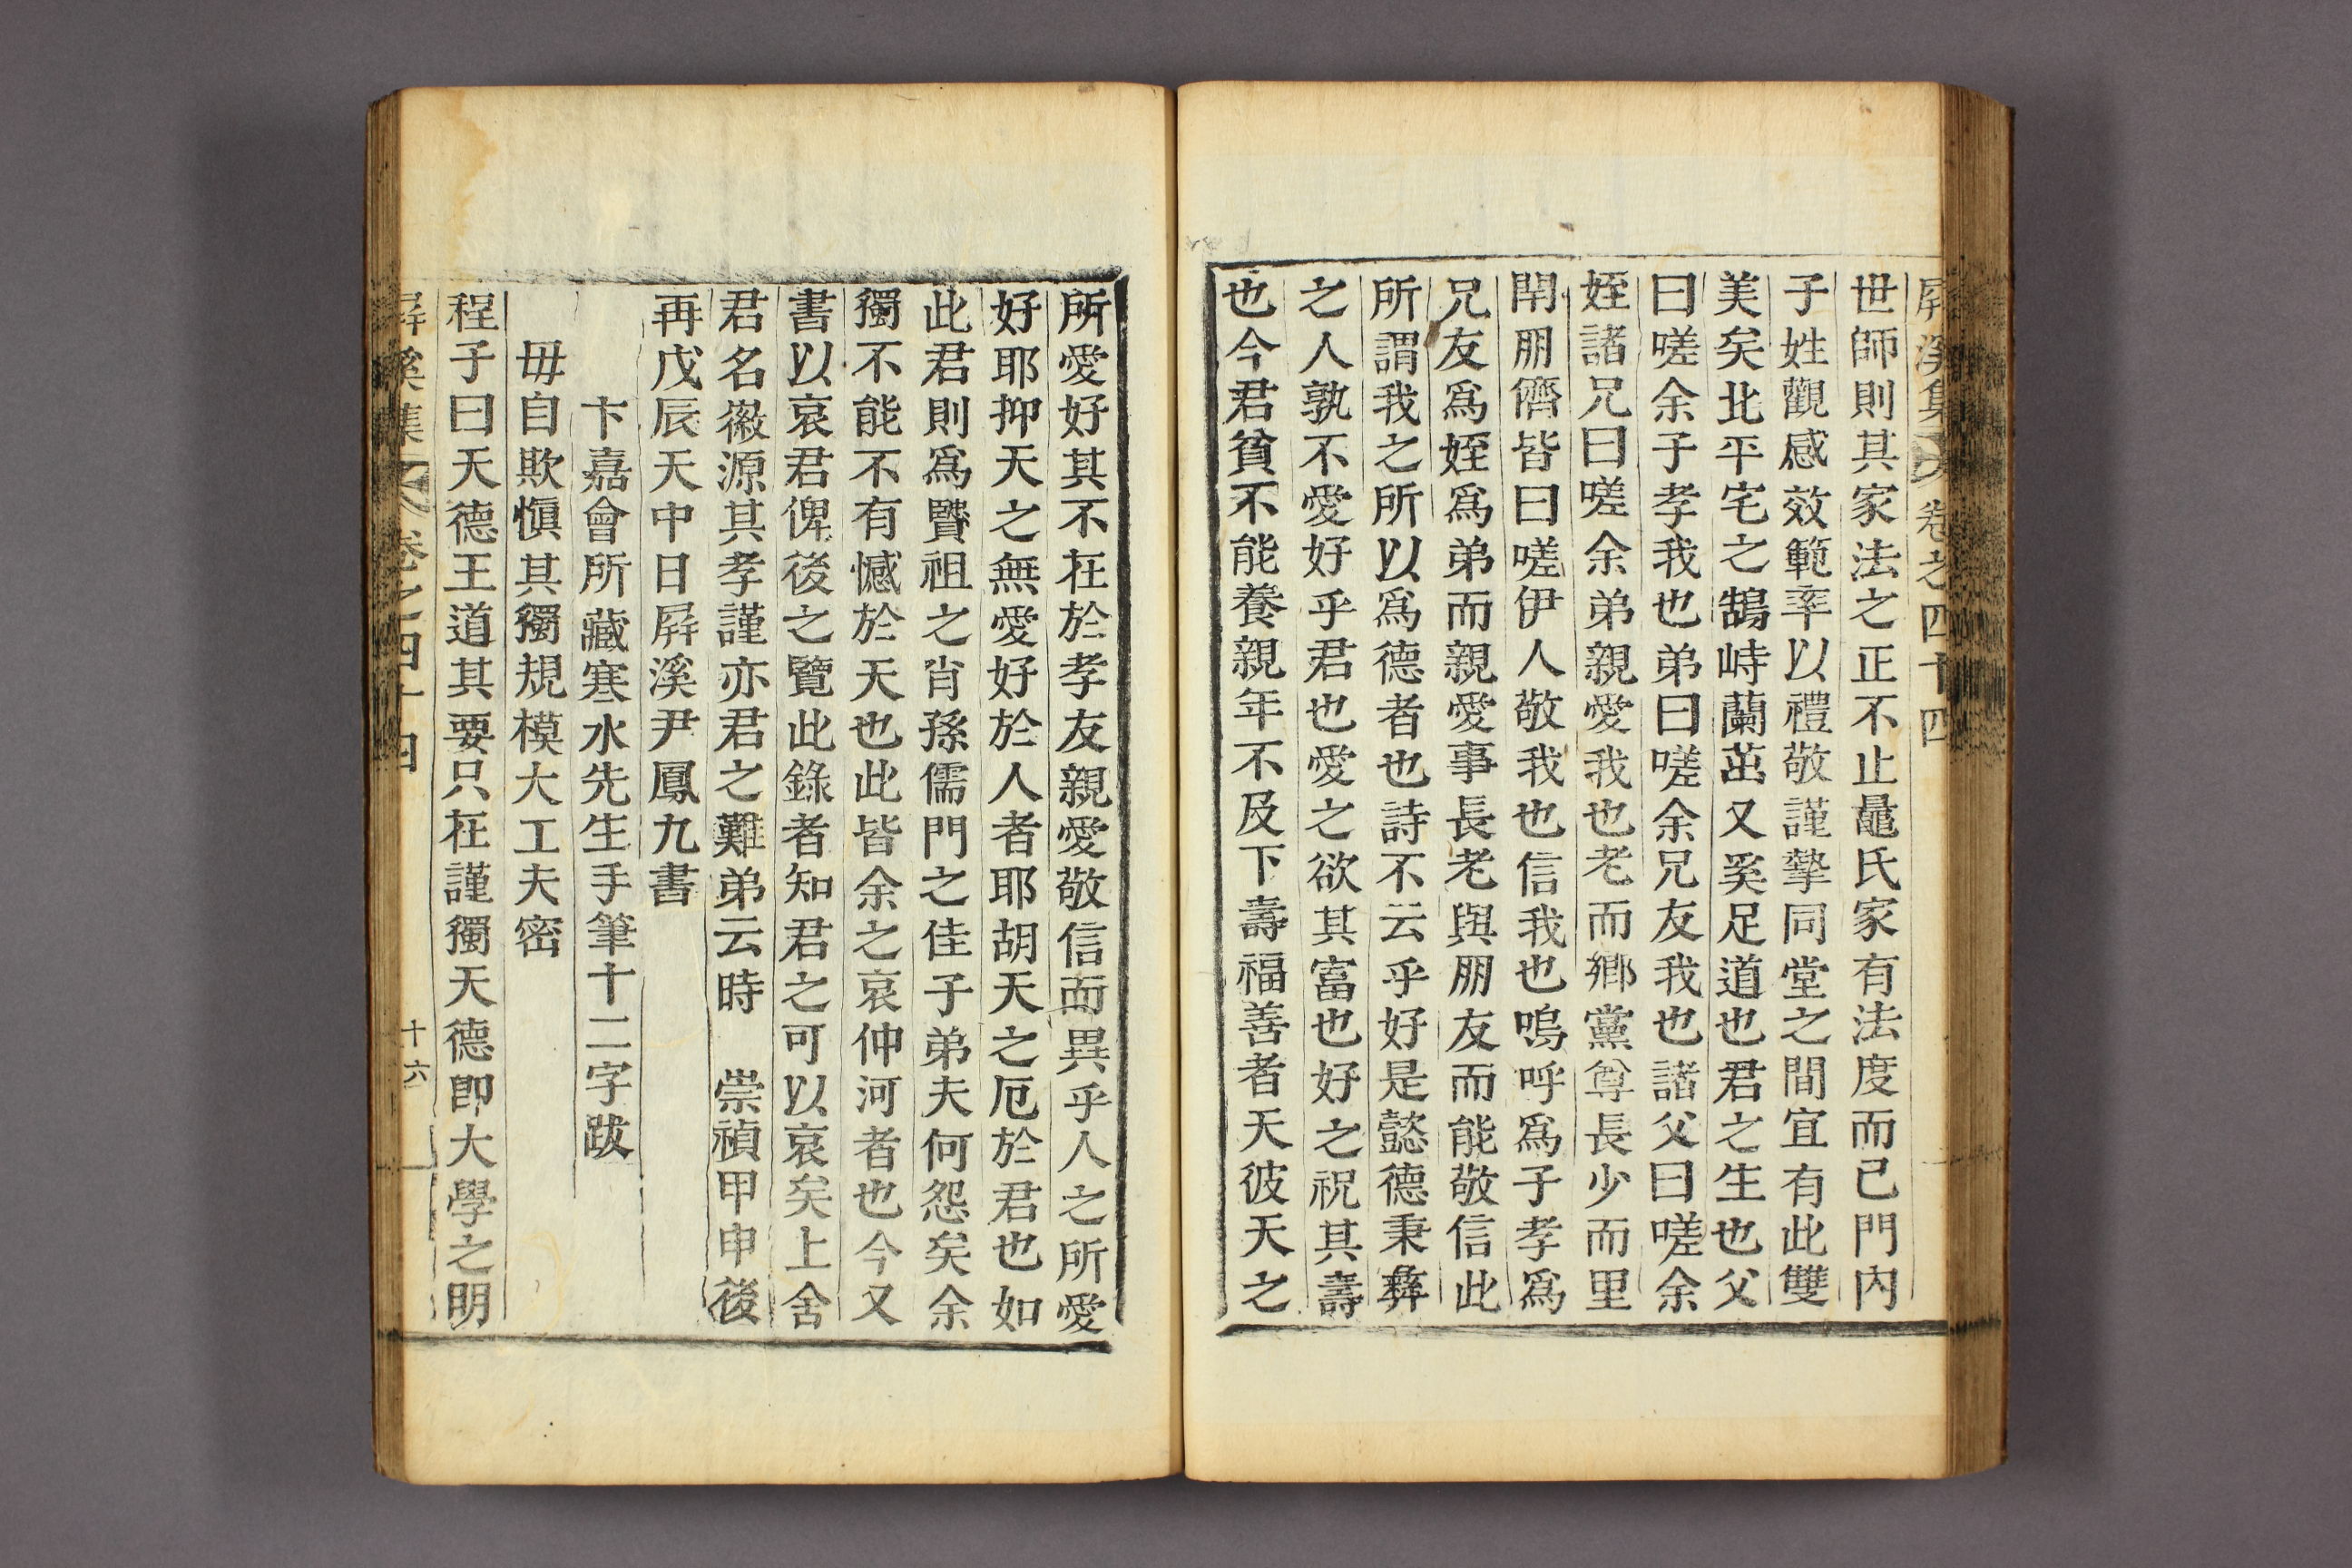 屛溪集 卷之四十四
世師則其家法之正不止鼂氏家有法度而已門內
子姓觀感效範率以禮敬謹摯同堂之間宜有此雙
美矣北平宅之鵠峙蘭茁又奚足道也君之生也父
曰嗟余子孝我也弟曰嗟余兄友我也諸父曰嗟余
姪諸兄曰嗟余弟親愛我也老而鄕黨尊長少而里
閈朋儕皆曰嗟伊人敬我也信我也嗚呼爲子孝爲
兄友爲姪爲弟而親愛事長老與朋友而能敬信此
所謂我之所以爲德者也詩不云乎好是懿德秉彝
之人孰不愛好乎君也愛之欲其富也好之祝其壽
也今君貧不能養親年不及下壽福善者天彼天之
所愛好其不在於孝友親愛敬信而異乎人之所愛
好耶抑天之無愛好於人者耶胡天之厄於君也如
此君則爲賢祖之肖孫儒門之佳子弟夫何怨矣余
獨不能不有憾於天也此皆余之哀仲河者也今又
書以哀君俾後之覽此錄者知君之可以哀矣上舍
君名徽源其孝謹亦君之難弟云時 崇禎甲申後
再戊辰天中日屛溪尹鳳九書
卞嘉會所藏寒水先生手筆十二字跋
毋自欺愼其獨規模大工夫密
程子曰天德王道其要只在謹獨天德卽大學之明
屛溪集 卷之四十四 十六